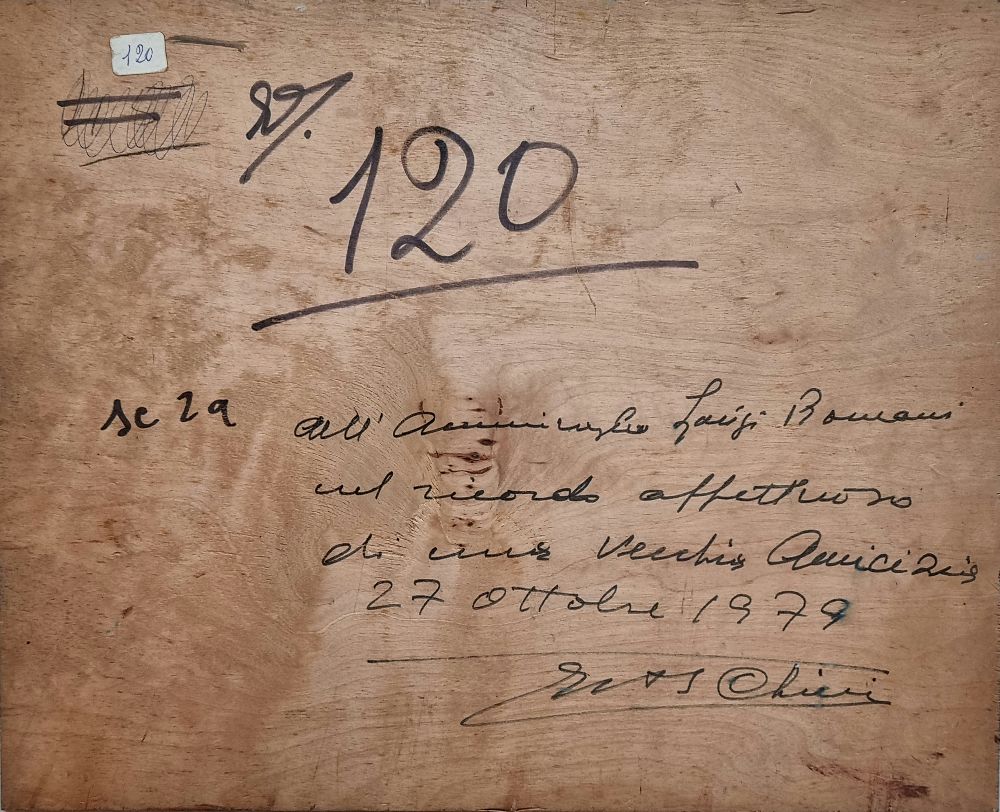 120
120
all'Ammiraglio Luigi Romani
nel ricordo affettuoso
di una vecchia Amicizia
27 Ottobre 1979